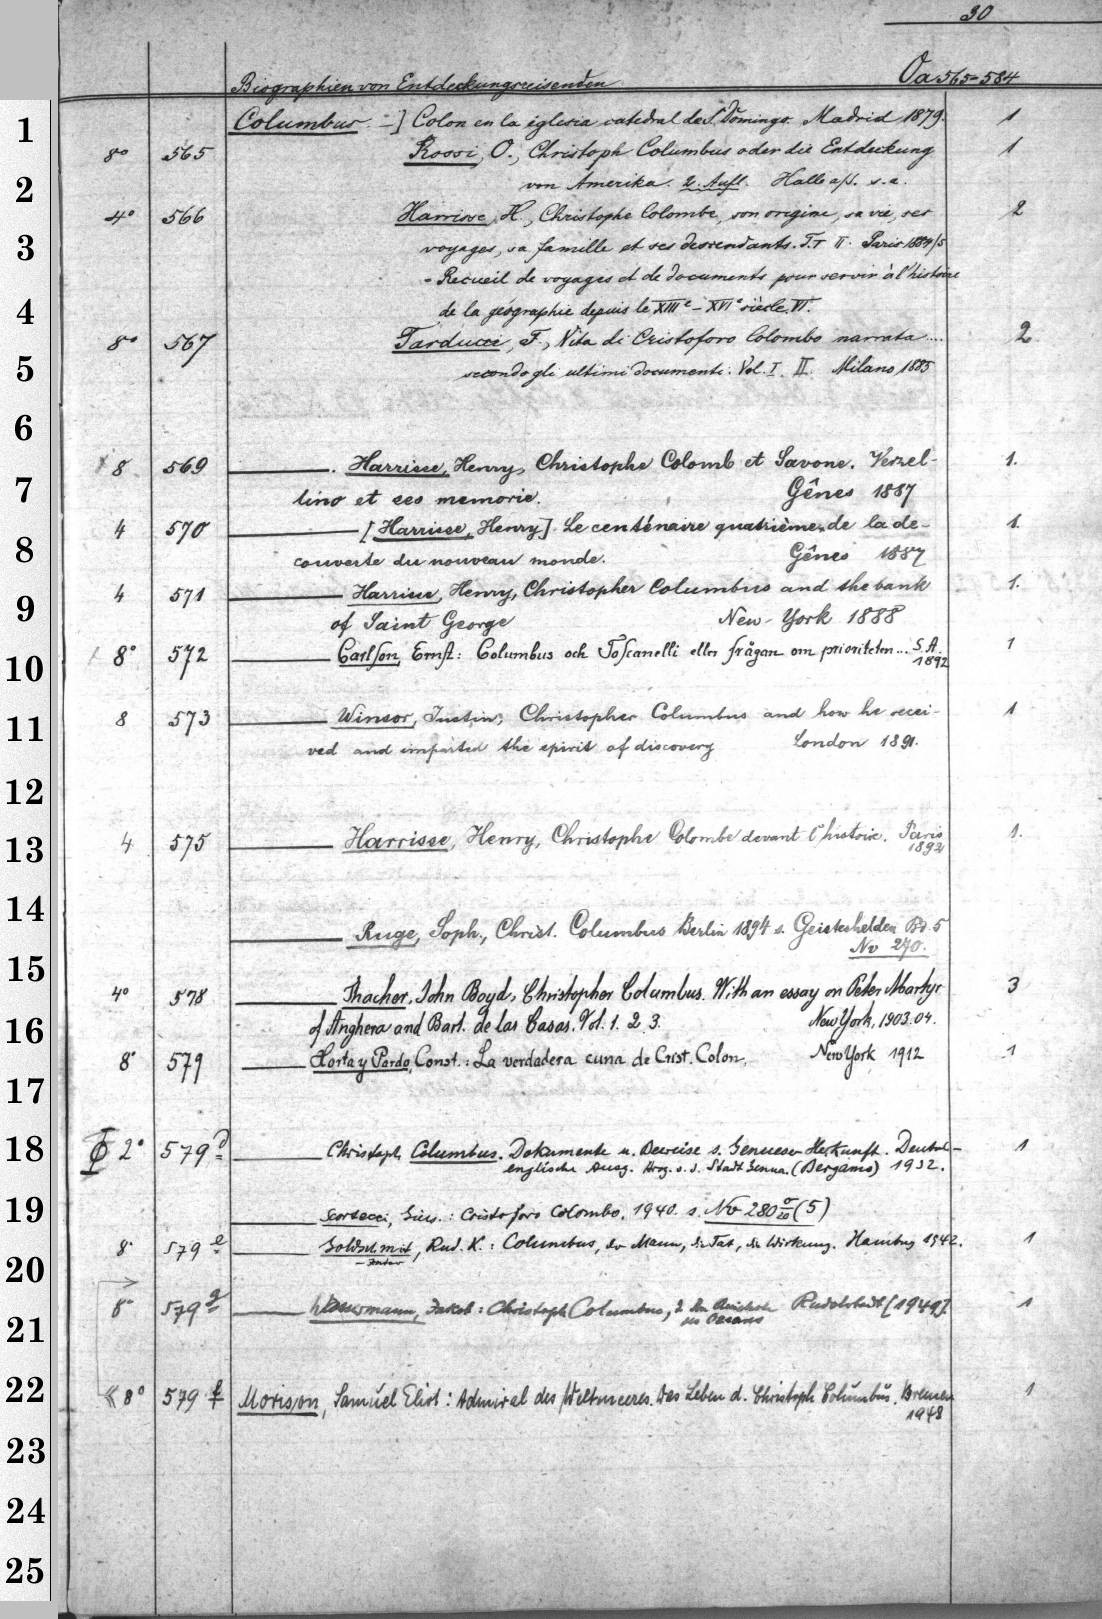 30
Biographien von Entdeckungsreisenden Oa 565-584
1 Columbus. -] Colon en la iglesia catedral de S. Domingo. Madrid 1879. 1
8° 565 Rossi, O., Christoph Columbus oder die Entdeckung 1
2 von Amerika. 2. Aufl. Halle a/S. s.a.
4° 566 Harrisse, H., Christophe Colombe, son origine, sa vie, ses 2
3 voyages, sa famille et ses descendants. T. I II. Paris 1884/5
- Recueil de voyages et de documents pour servir à l'histoire
4 de la géographie depuis le XIIIe - XVIe siècle. VI.
8° 567 Tarducci, F., Vita di Cristoforo Colombo narrata ... 2
5 secondo gli ultimi documenti. Vol. I II. Milano 1885
6
8 569 ———. Harrisse, Henry, Christophe Colomb et Savone. Verzel- 1.
7 lino et ses memorie. Gênes 1887
4 570 ——— [Harrisse, Henry.] Le centénaire quatrième de la de- 1.
8 couverte du nouveau monde. Gênes 1887
4 571 ——— Harrisse, Henry, Christopher Columbus and the bank 1.
9 of Saint George New-York 1888
10 8° 572 ——— Carlson, Ernst: Columbus och Toscanelli eller frågan om prioriteten... S.A. 1892 1
11 8 573 ——— Winsor, Justin, Christopher Columbus and how he recei- 1
ved and imparted the spirit of discovery London 1891.
12
13 4 575 ——— Harrisse, Henry, Christophe Colombe devant l'histoire. Paris 1892 1.
14
——— Ruge, Soph., Christ. Columbus Berlin 1894 s. Geisteshelden Bd. 5
15 Nv 270.
4° 578 ——— Thacher, John Boyd, Christopher Columbus. With an essay on Peter Martyr 3
16 of Anghera and Bart. de las Casas. Vol. 1. 2. 3. New York, 1903.04.
8° 579 ——— Horta y Pardo, Const.: La verdadera cuna de Crist. Colon. New York 1912 1
17
18 2° 579 d ——— Christoph Columbus. Dokumente u. Beweise s. Genueser Herkunft. Deutsch- 1
englische Ausg. Hrsg. v. d. Stadt Genua. (Bergamo) 1932.
19 ——— Scortecci, Gius.: Cristoforo Colombo. 1940. s. Nv 280 (5)
8° 579 e ——— Goldschmit, Rud. K.: Columbus, der Mann, die Tat, die Wirkung. Hamburg 1942. 1
20
8° 579 g ——— Wassermann, Jakob: Christoph Columbus, d. Don Quichote Rudolstadt [1949] 1
des Ozeans
21
22 8° 579 f Morison, Samuel Eliot: Admiral des Weltmeeres. Das Leben d. Christoph Columbus. Bremen 1
1948
23
24
25